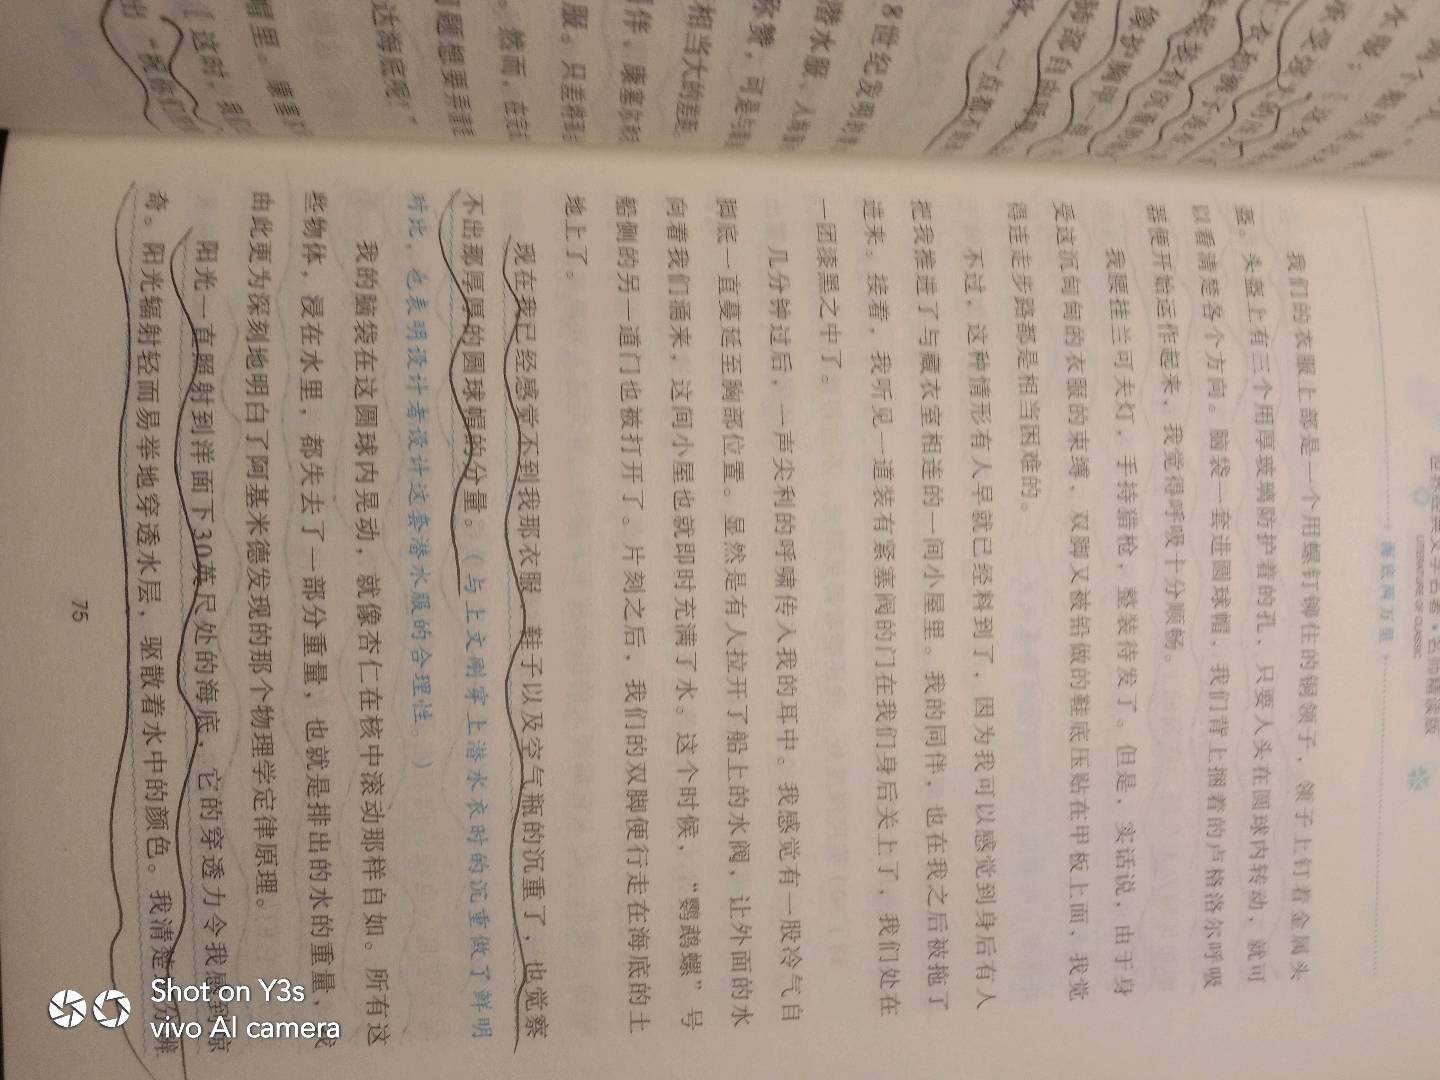 世界经典文学名著·名师精读版
LITERATURE OF CLASSIC
海底两万里
我们的衣服上部是一个用螺钉铆住的铜领子，领子上钉着金属头
盔。头盔上有三个用厚玻璃防护着的孔，只要人头在圆球内转动，就可
以看清楚各个方向。脑袋一套进圆球帽，我们背上捆着的卢格洛尔呼吸
器便开始运作起来，我觉得呼吸十分顺畅。
我腰挂兰可夫灯，手持猎枪，整装待发了。但是，实话说，由于身
受这沉甸甸的衣服的束缚，双脚又被铅做的鞋底压贴在甲板上面，我觉
得连走步路都是相当困难的。
不过，这种情形有人早就已经料到了，因为我可以感觉到身后有人
把我推进了与藏衣室相连的一间小屋里。我的同伴，也在我之后被拖了
进来。接着，我听见一道装有紧塞阀的门在我们身后关上了，我们处在
一团漆黑之中了。
几分钟过后，一声尖利的呼啸传入我的耳中。我感觉有一股冷气自
脚底一直蔓延至胸部位置。显然是有人拉开了船上的水阀，让外面的水
向着我们涌来，这间小屋也就即时充满了水。这个时候，“鹦鹉螺”号
船侧的另一道门也被打开了。片刻之后，我们的双脚便行走在海底的土
地上了。
现在我已经感觉不到我那衣服、鞋子以及空气瓶的沉重了，也觉察
不出那厚厚的圆球帽的分量。（与上文刚穿上潜水衣时的沉重做了鲜明
对比，也表明设计者设计这套潜水服的合理性。）
我的脑袋在这圆球内晃动，就像杏仁在核中滚动那样自如。所有这
些物体，浸在水里，都失去了一部分重量，也就是排出的水的重量，我
由此更为深刻地明白了阿基米德发现的那个物理学定律原理。
阳光一直照射到洋面下30英尺处的海底，它的穿透力令我感到惊
奇。阳光辐射轻而易举地穿透水层，驱散着水中的颜色。我清楚地分辨
75
8世纪发明的
潜水服、人
称赞，可是与
相当大的差距
同伴，康塞尔和
服。只差将
。然而，在完
问题想要弄清
达海底呢？”
帽里。康塞
［这时，我
出“祝你们
Shot on Y3s
vivo AI camera